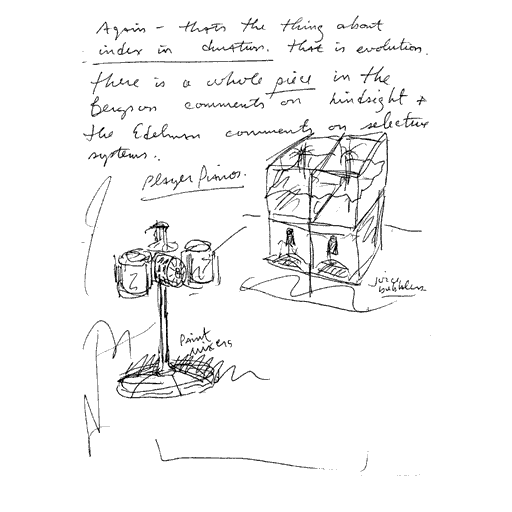 Again - thats the thing about
index in duration. that is evolution.
there is a whole piece in the
Bergson comments on hindsight +
the Edelman comments on selective
systems.
player pianos.
juice
bubblers
Paint
mixers